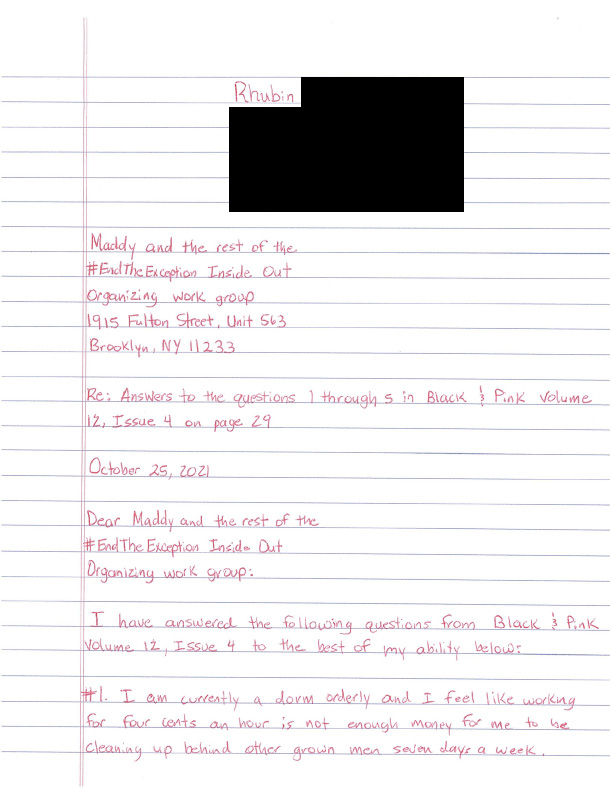 Rhubin
Maddy and the rest of the
#EndTheException Inside Out
Organizing work group
1915 Fulton Street, Unit 563
Brooklyn, NY 11233
Re: Answers to the questions 1 through 5 in Black & Pink Volume
12, Issue 4 on page 29
October 25, 2021
Dear Maddy and the rest of the
#EndTheException Inside Out
Organizing work group:
I have answered the following questions from Black & Pink
Volume 12, Issue 4 to the best of my ability below:
#1. I am currently a dorm orderly and I feel like working
for four cents an hour is not enough money for me to be
cleaning up behind other grown men seven days a week.